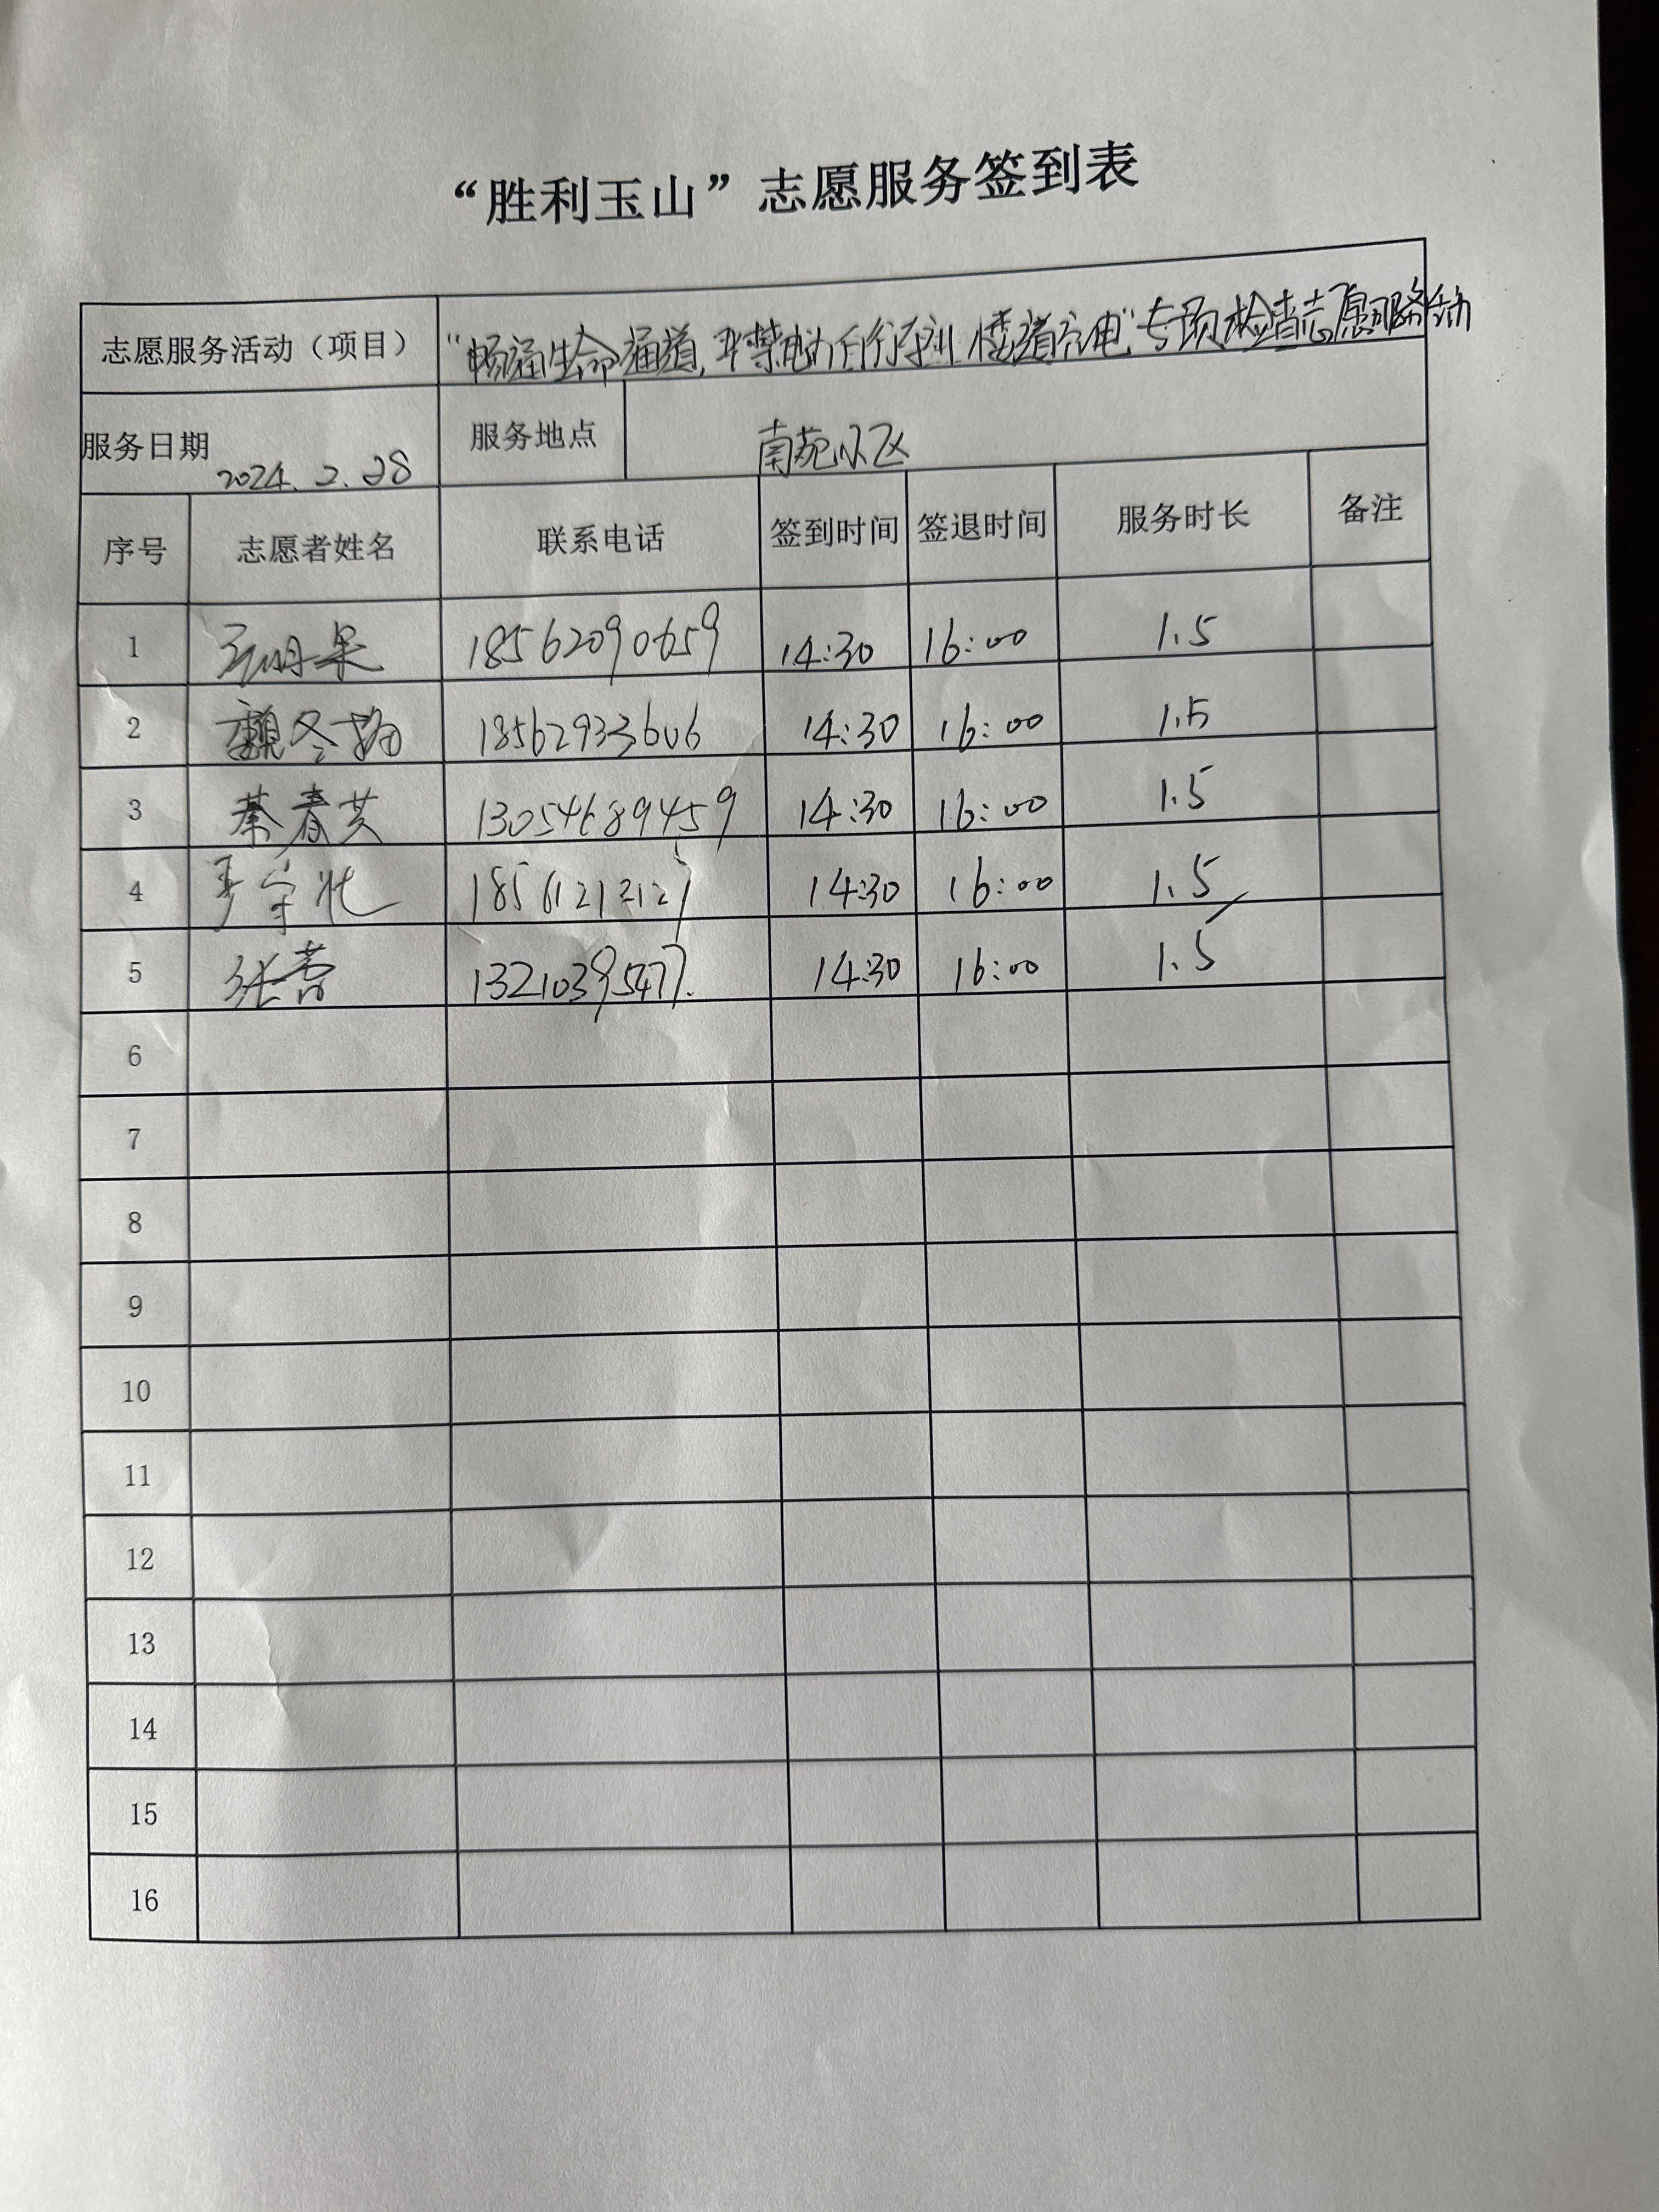 “胜利玉山”志愿服务签到表
志愿服务活动（项目） “畅通生命通道，严禁电动自行车 楼道充电”专项检查志愿服务活动
服务日期 2024.2.28 服务地点 南苑小区
序号 志愿者姓名 联系电话 签到时间 签退时间 服务时长 备注
1 18562090659 14:30 16:00 1.5
2 魏冬梅 18562933606 14:30 16:00 1.5
3 綦春芸 13054689459 14:30 16:00 1.5
4 14:30 16:00 1.5
5 张蕾 13210395477 14:30 16:00 1.5
6
7
8
9
10
11
12
13
14
15
16